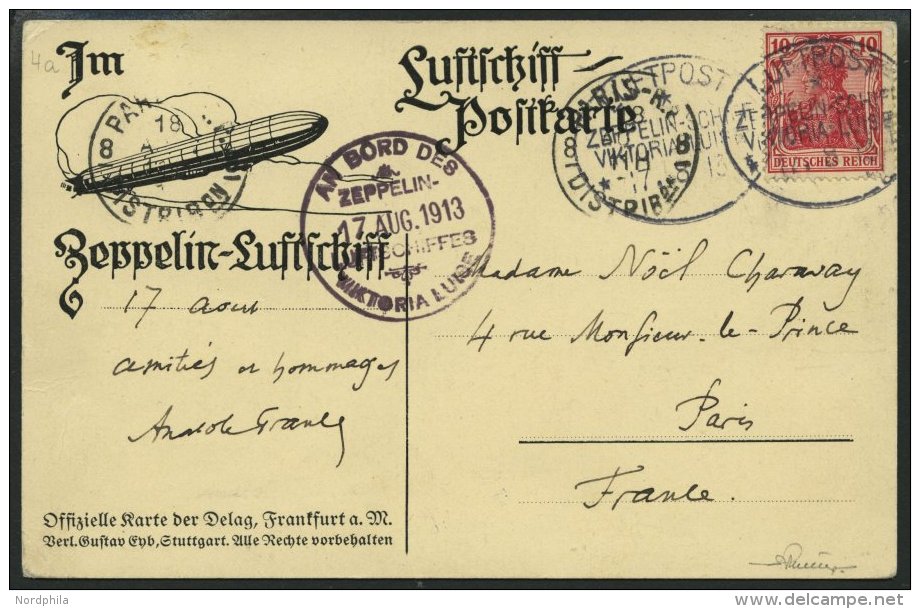 4a
Im
Luftschiff-
Postkarte
Zeppelin-Luftschiff
PAR
18
8
DISTRIB
AN BORD DES
ZEPPELIN-
17 AUG. 1913
LUFTSCHIFFES
VIKTORIA LUISE
PARIS-
8
DISTRIB
LUFTPOST
ZEPPELIN-SCH
VIKTORIA-LUI
13
LUFTPOST
ZEPPELIN-SCH
VIKTORIA-LUIS
10 10
DEUTSCHES REICH
17 aout
amitiés et hommages
Anatole France
Madame Nöel
4 rue Monsieur-le-Prince
Paris
France.
Offizielle Karte der Delag, Frankfurt a. M.
Verl. Gustav Eyb, Stuttgart. Alle Rechte vorbehalten
Nordphila
delcampe.net